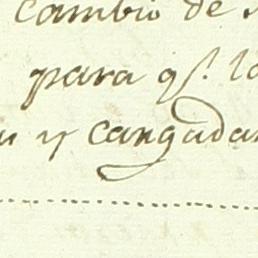 cambio de
para qs. lo
y cangadar